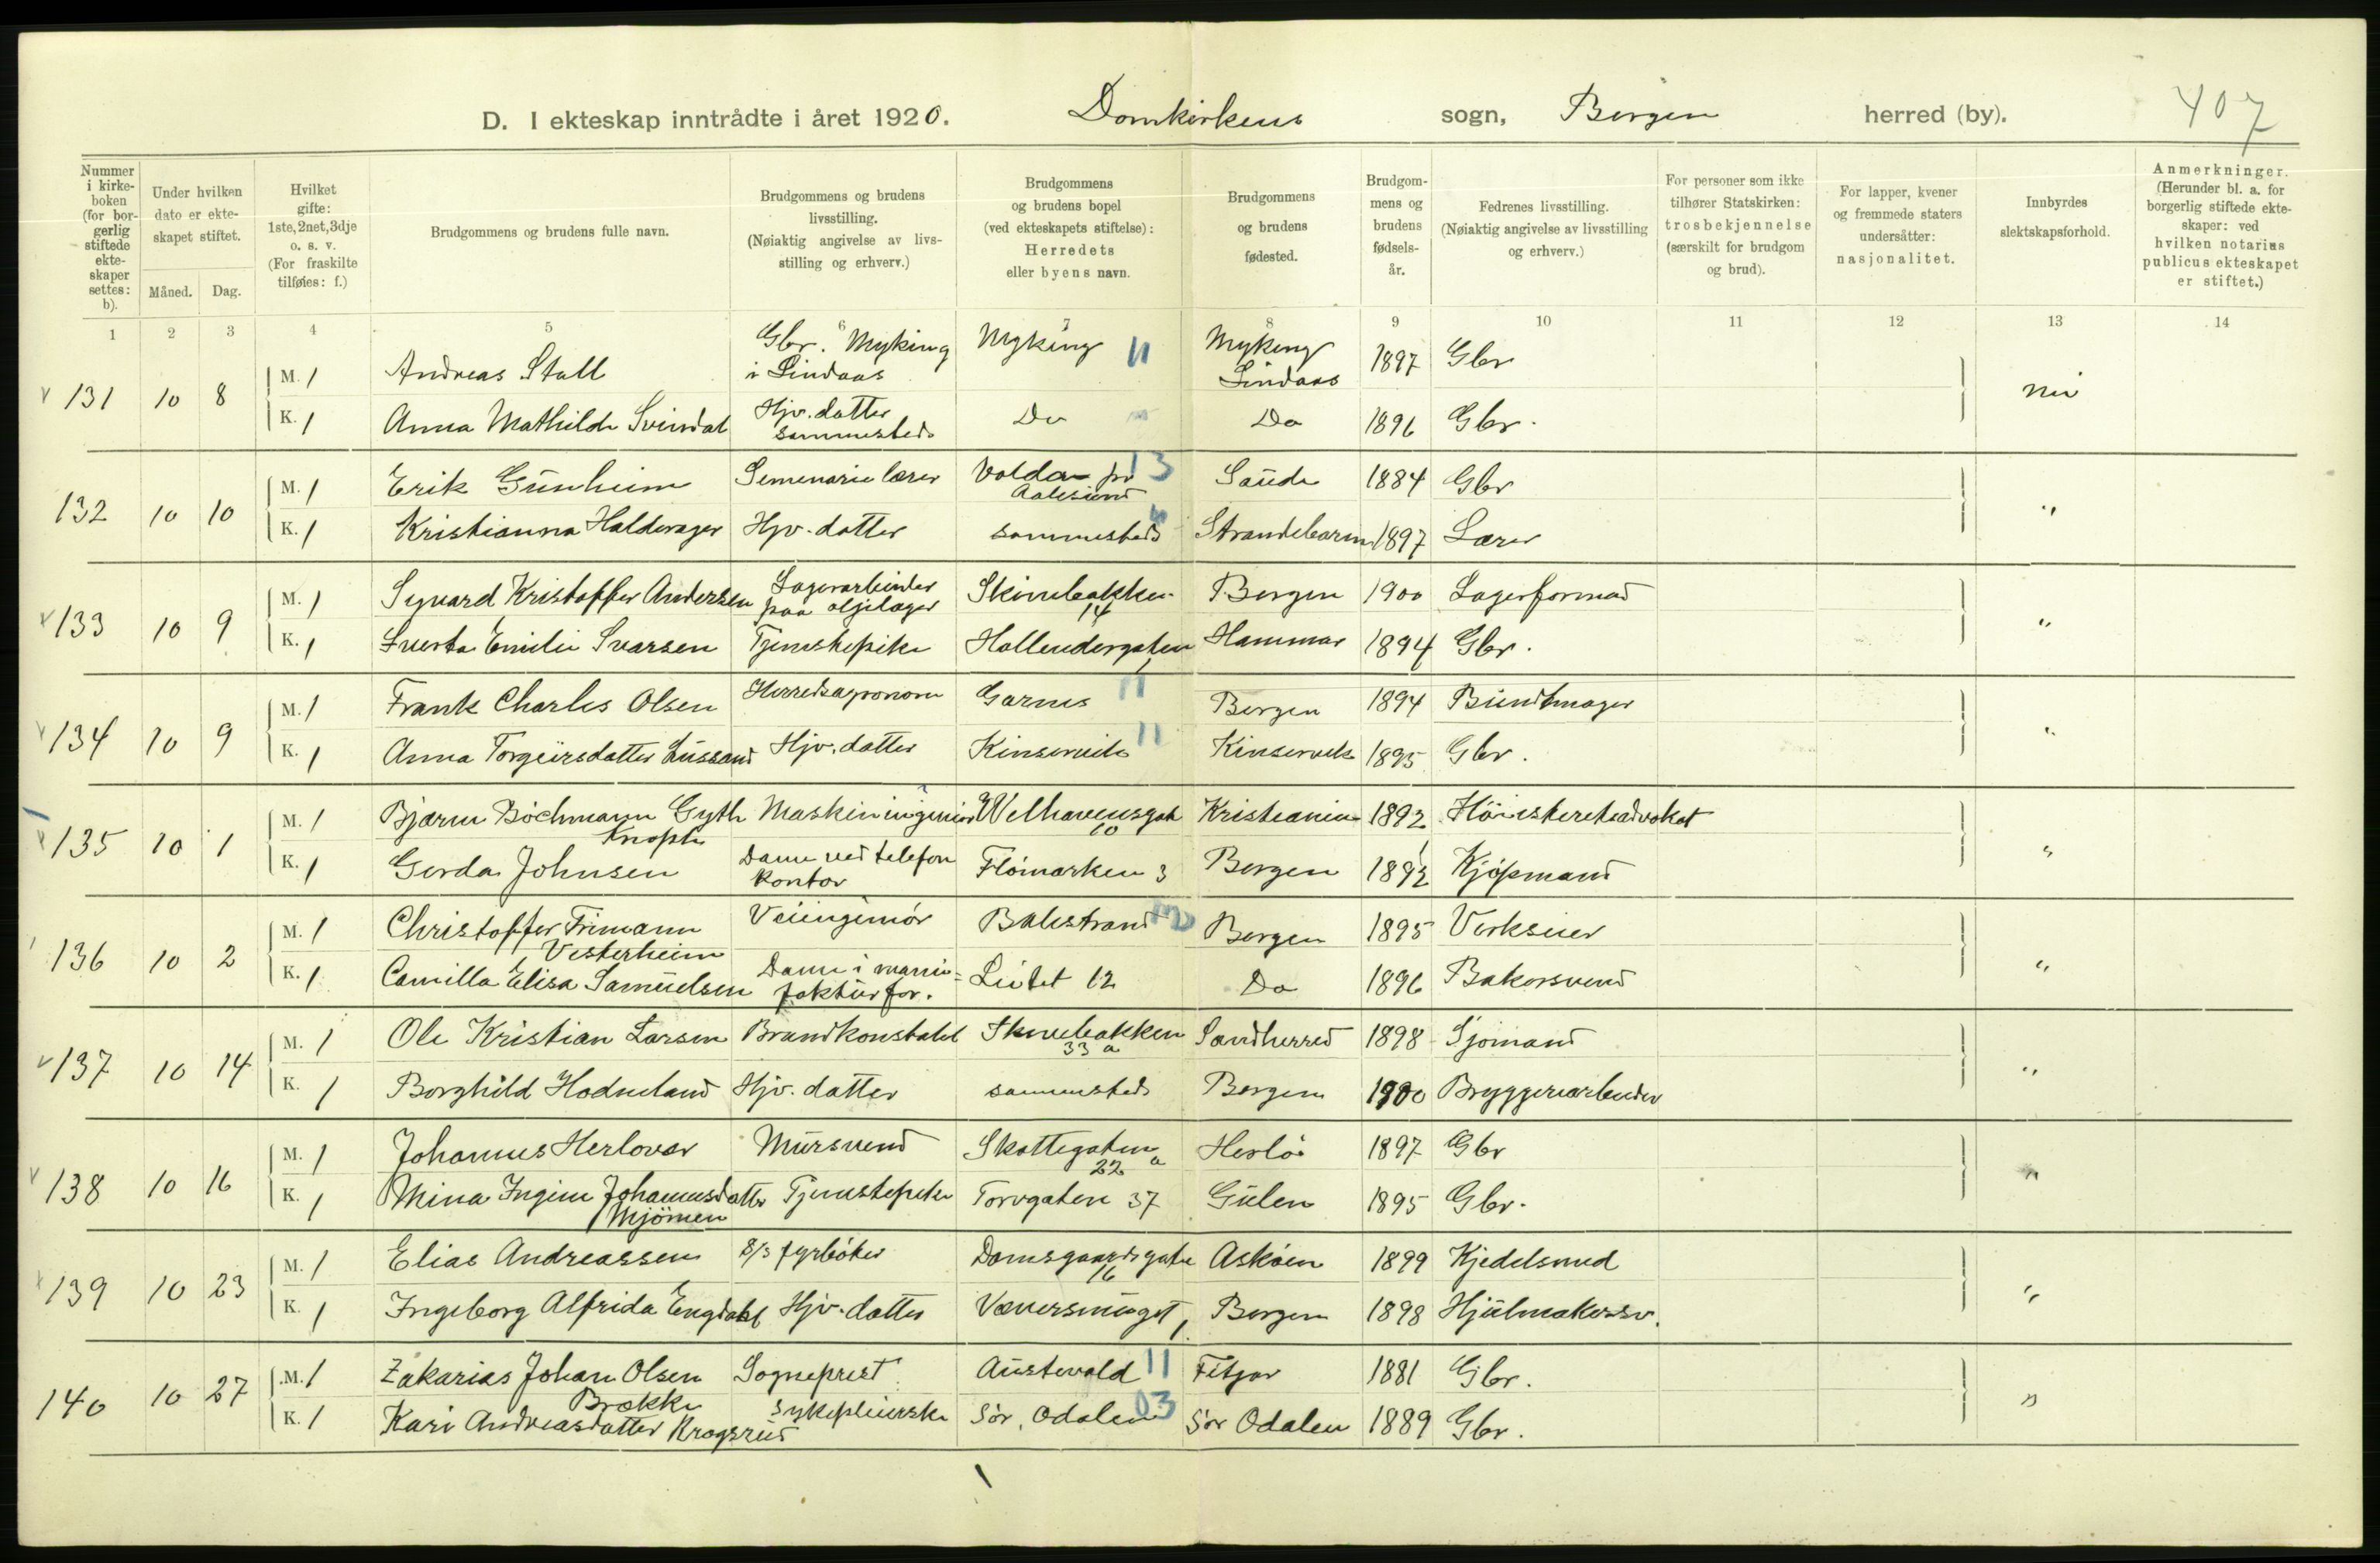 407
D. I ekteskap inntrådte i året 1920. Domkirkens sogn, Bergen herred (by).
Nummer i kirke-boken (for bor-gerlig stiftede ekte-skaper settes: b).
Under hvilken dato er ekte-skapet stiftet.
Måned. Dag.
Hvilket gifte: 1ste, 2net, 3dje o. s. v. (For fraskilte tilføies: f.)
Brudgommens og brudens fulle navn.
Brudgommens og brudens livsstilling. (Nøiaktig angivelse av livs-stilling og erhverv.)
Brudgommens og brudens bopel (ved ekteskapets stiftelse): Herredets eller byens navn.
Brudgommens og brudens fødested.
Brudgom-mens og brudens fødsels-år.
Fedrenes livsstilling. (Nøiaktig angivelse av livsstilling og erhverv.)
For personer som ikke tilhører Statskirken: trosbekjennelse (særskilt for brudgom og brud).
For lapper, kvener og fremmede staters undersåtter: nasjonalitet.
Innbyrdes slektskapsforhold.
Anmerkninger. (Herunder bl. a. for borgerlig stiftede ekte-skaper: ved hvilken notarius publicus ekteskapet er stiftet.)
1 2 3 4 5 6 7 8 9 10 11 12 13 14
131 10 8 M. 1 Andreas Stall Gbr. Myking i Lindaas Myking 11 Myking Lindaas 1897 Gbr nei
K. 1 Anna Mathilde Svindal Hjv. datter sammesteds Do Do 1896 Gbr.
132 10 10 M. 1 Erik Grunheim Semenarielærer Volda pr Aalesund 13 Saude 1884 Gbr "
K. 1 Kristianna Halderager Hjv. datter sammesteds Strandebarm 1897 Lærer
133 10 9 M. 1 Syvard Kristoffer Andersen Lagerarbeider paa oljelager Skivebakken 14 Bergen 1900 Lagerformad "
K. 1 Sverta Emilie Svarsen Tjenestepike Hollendergaten 1 Hammar 1894 Gbr.
134 10 9 M. 1 Frank Charles Olsen Herredsagronom Garnes 11 Bergen 1894 Bundtmager "
K. 1 Anna Torgeirsdatter Lussand Hjv. datter Kinservik 11 Kinservik 1895 Gbr.
135 10 1 M. 1 Bjarne Böchmann Gyth Knoph Maskiningeniør Welhavensgate 10 Kristiania 1892 Höiesteretsadvokat "
K. 1 Gerda Johnsen Dame ved telefon kontor Flómarken 3 Bergen 1892 Kjøpmand
136 10 2 M. 1 Christoffer Frimann Vesterheim Veiingeniör Balestrand Bergen 1895 Verkseier "
K. 1 Camilla Elisa Samuelsen Dame i manu-faktur for. Lietet 12 Do 1896 Bakersvend
137 10 14 M. 1 Ole Kristian Larsen Brandkonstabel Skivebakken 33 a Sandherred 1898 Sjömand "
K. 1 Borghild Hodneland Hjv. datter sammesteds Bergen 1900 Bryggeriarbeider
138 10 16 M. 1 Johannes Herlovær Mursvend Skottegaten 22 a Herlö 1897 Gbr "
K. 1 Mina Ingine Johannesdatter Mjömen Tjenestepike Torvgaten 37 Gulen 1895 Gbr.
139 10 23 M. 1 Elias Andreassen S/S fyrböter Damsgaardsgate 16 Asköen 1899 Kjedelsmed "
K. 1 Ingeborg Alfrida Engdahl Hjv. datter Væversmuget 1. Bergen 1898 Hjulmakersv.
140 10 27 M. 1 Zakarias Johan Olsen Brække Sogneprest Austevold 11 Fitjar 1881 Gbr. "
K. 1 Kari Andreasdatter Kragsrud Sykepleierske Sör. Odalen 03 Sör Odalen 1889 Gbr.